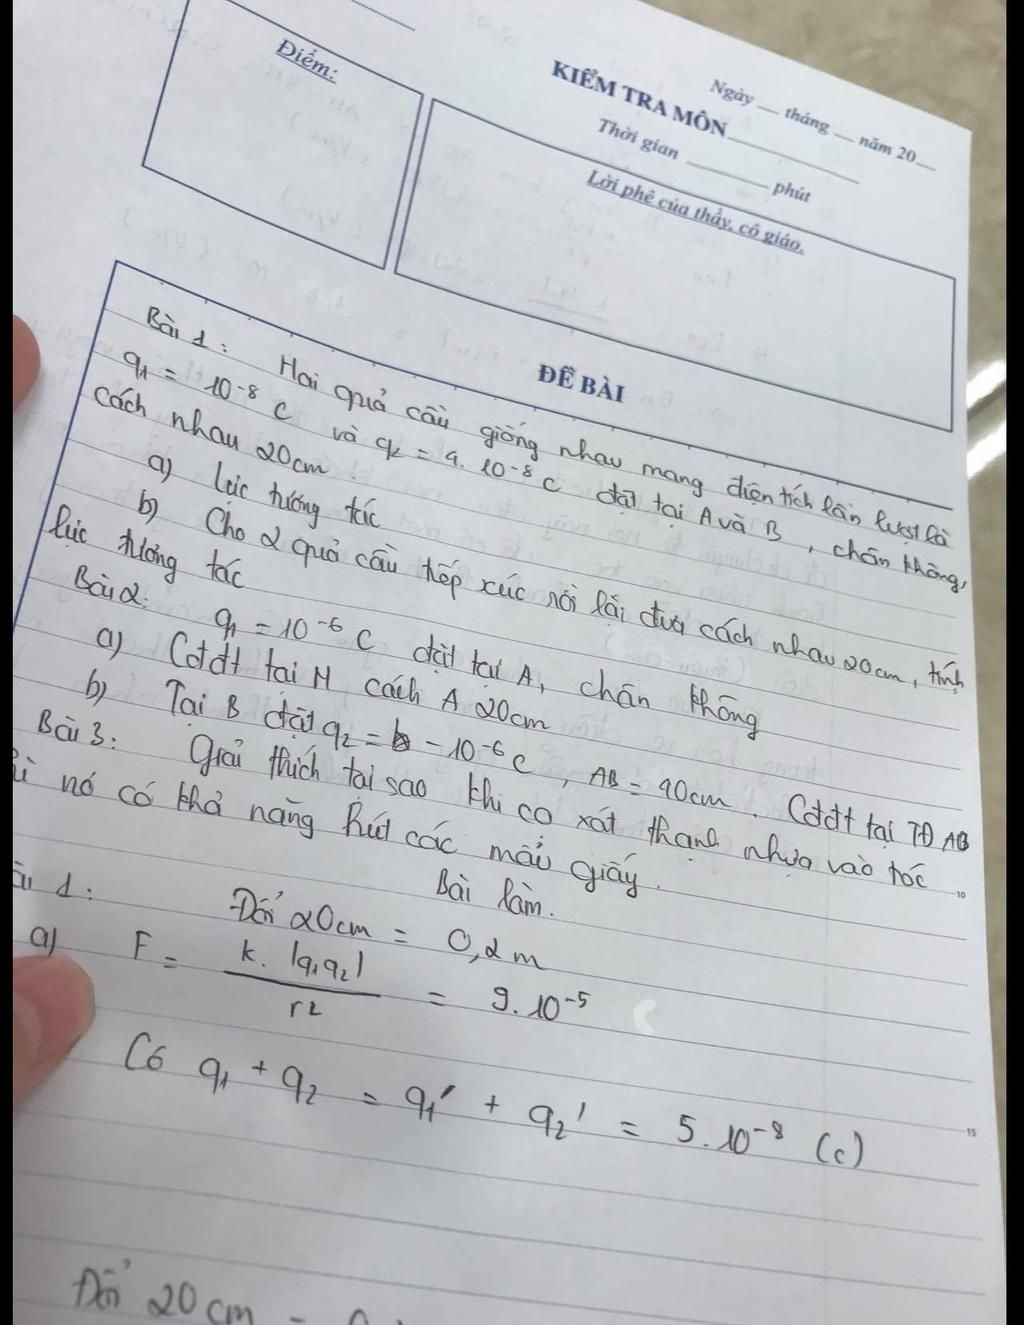 Ngày ___ tháng ___ năm 20__
KIỂM TRA MÔN
Thời gian ________ phút
Điểm:
Lời phê của thầy, cô giáo.
ĐỀ BÀI
Bài 1: Hai quả cầu giống nhau mang điện tích lần lượt là
q1 = 10^-8 C và q2 = 4. 10^-8 C đặt tại A và B, chân không,
cách nhau 20cm
a) Lực tương tác
b) Cho 2 quả cầu tiếp xúc rồi lại đưa cách nhau 20cm, tính
lực tương tác
Bài 2: q1 = 10^-6 C đặt tại A, chân không
a) Cđđt tại M cách A 20cm
b) Tại B đặt q2 = -10^-6 C, AB = 40cm. Cđđt tại TĐ AB
Bài 3: Giải thích tại sao khi cọ xát thanh nhựa vào tóc
nó có khả năng hút các mẩu giấy.
10
Bài làm.
1:
Đổi 20cm = 0,2m
a) F = k. |q1q2| / r2 = 9. 10^-5
Có q1 + q2 = q1' + q2' = 5. 10^-8 (C)
15
Đổi 20 cm =